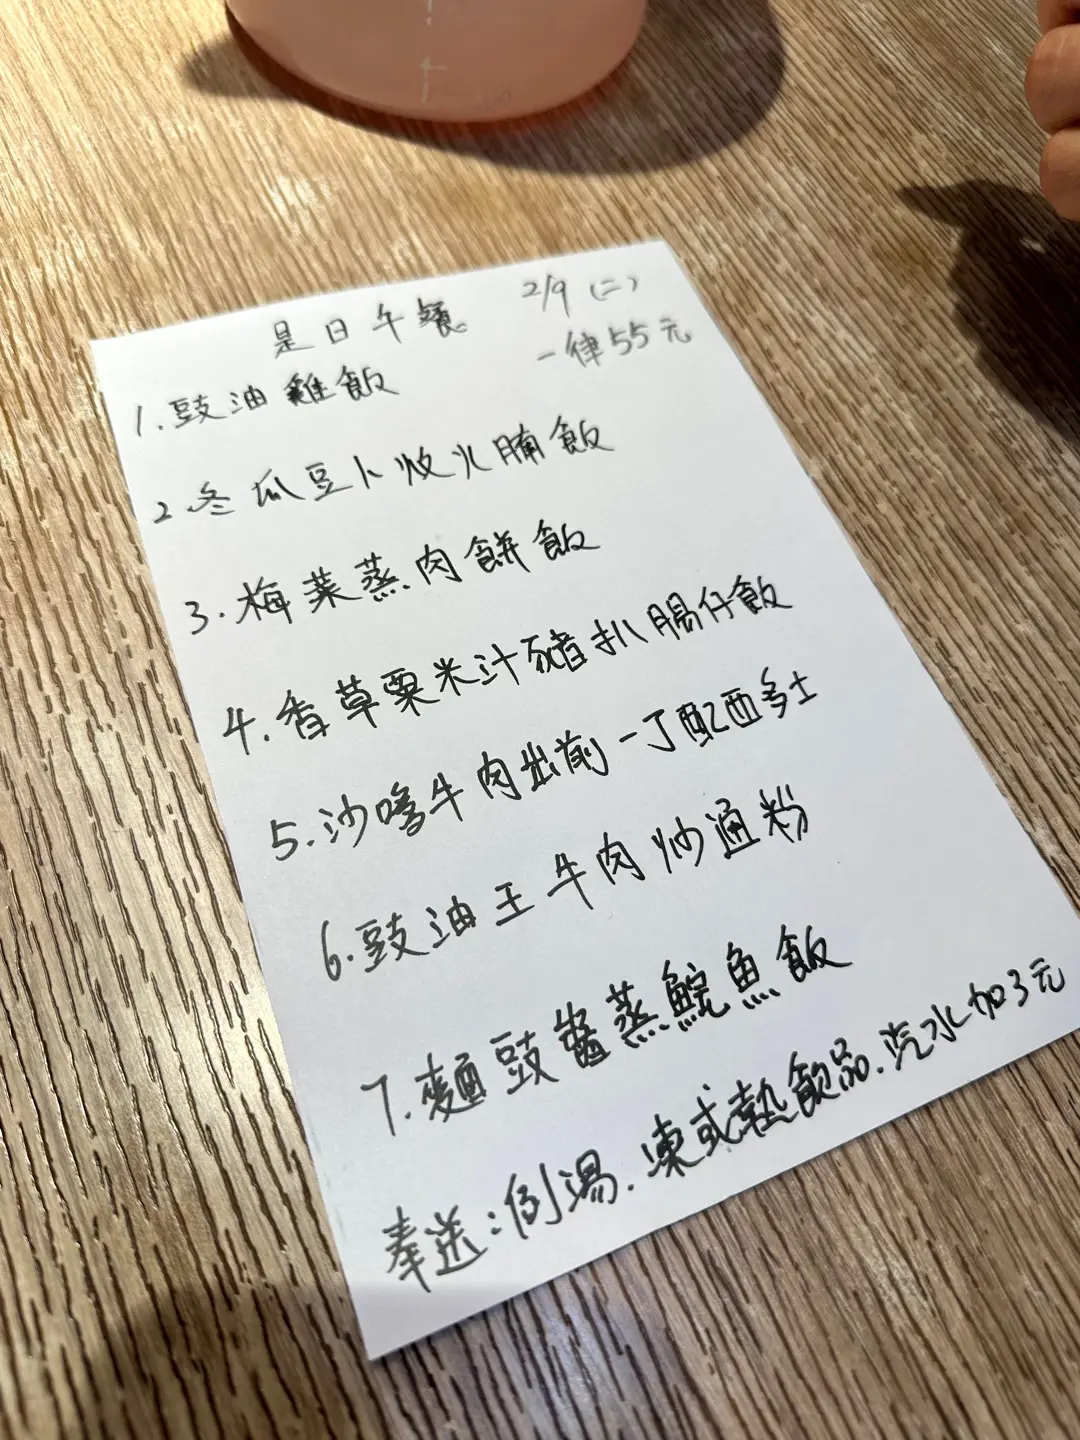 是日午餐 2/9 (二)
一律55元
1. 豉油雞飯
2. 冬瓜豆卜炆火腩飯
3. 梅菜蒸肉餅飯
4. 香草粟米汁豬扒腸仔飯
5. 沙嗲牛肉出前一丁配西多士
6. 豉油王牛肉炒通粉
7. 麵豉醬蒸鯇魚飯
奉送:例湯.凍或熱飲品.汽水加3元